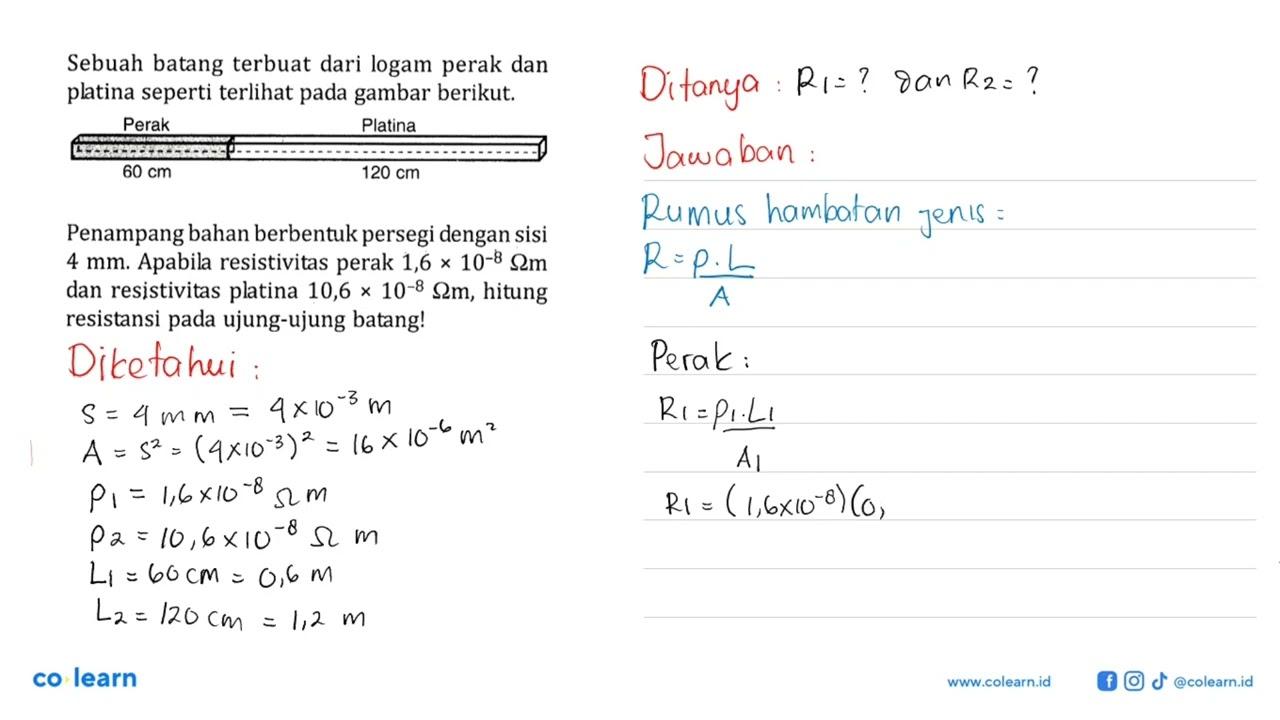 Sebuah batang terbuat dari logam perak dan
platina seperti terlihat pada gambar berikut.
Perak
Platina
60 cm
120 cm
Penampang bahan berbentuk persegi dengan sisi
4 mm. Apabila resistivitas perak 1,6 × 10⁻⁸ Ωm
dan resistivitas platina 10,6 × 10⁻⁸ Ωm, hitung
resistansi pada ujung-ujung batang!
Diketahui :
S = 4 mm = 4×10⁻³ m
A = s² = (4×10⁻³)² = 16 × 10⁻⁶ m²
ρ1 = 1,6×10⁻⁸ Ω m
ρ2 = 10,6 × 10⁻⁸ Ω m
L1 = 60 cm = 0,6 m
L2 = 120 cm = 1,2 m
Ditanya : R1 = ? dan R2 = ?
Jawaban :
Rumus hambatan jenis =
R = ρ . L
A
Perak :
R1 = ρ1 . L1
A1
R1 = (1,6×10⁻⁸)(0,
co learn
www.colearn.id
@colearn.id